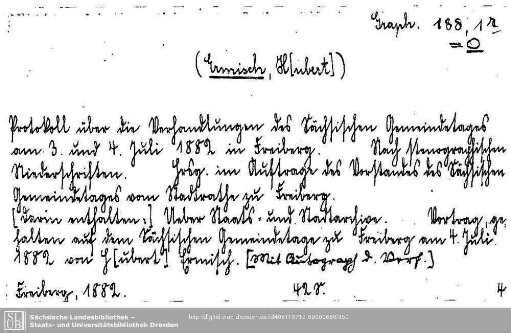 Graph. 188, 1 n
= O
(Ermisch, H[ubert])
Protokoll über die Verhandlungen des Sächsischen Gemeindetages
am 3. und 4. Juli 1882 in Freiberg. Nach stenographischen
Niederschriften. Hrsg. im Auftrage des Vorstandes des Sächsischen
Gemeindetages vom Stadtrathe zu Freiberg.
[Darin enthalten:] Ueber Staats- und Stadtarchive. Vortrag, ge-
halten auf dem Sächsischen Gemeindetage zu Freiberg am 4. Juli
1882 von H[ubert] Ermisch. [Mit Autograph d. Verf.]
Freiberg, 1882. 42 S. 4
Sächsische Landesbibliothek –
Staats- und Universitätsbibliothek Dresden